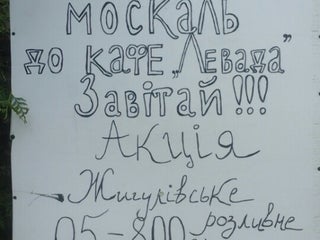 москаль
до кафе „Левада”
Завітай!!!
Акція
Жигулівське
05-800 розливне